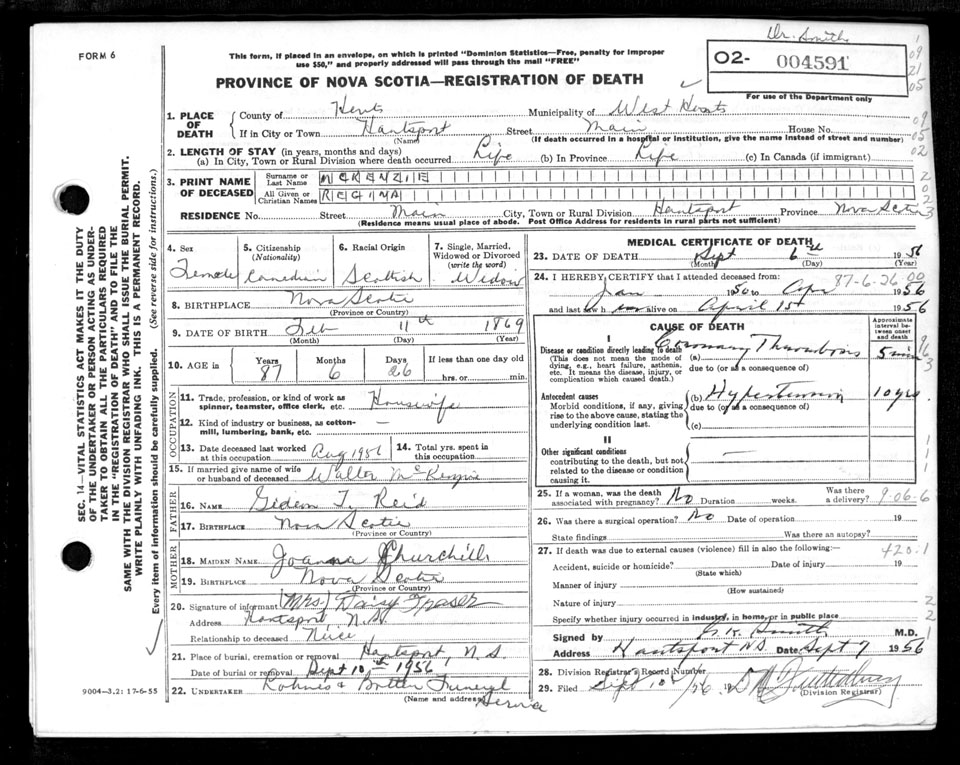 Dr. Smith
FORM 6
This form, if placed in an envelope, on which is printed "Dominion Statistics—Free, penalty for improper
use $50," and properly addressed will pass through the mail "FREE"
02- 004591
For use of the Department only
PROVINCE OF NOVA SCOTIA—REGISTRATION OF DEATH
1. PLACE OF DEATH
County of Hants Municipality of West Hants
If in City or Town Hantsport Street Main House No.
(Name) (If death occurred in a hospital or institution, give the name instead of street and number)
2. LENGTH OF STAY (in years, months and days)
(a) In City, Town or Rural Division where death occurred Life (b) In Province Life (c) In Canada (if immigrant)
3. PRINT NAME OF DECEASED
Surname or Last Name McKENZIE
All Given or Christian Names REGINA
RESIDENCE No. Street Main City, Town or Rural Division Hantsport Province Nova Scotia
(Residence means usual place of abode. Post Office Address for residents in rural parts not sufficient)
4. Sex Female
5. Citizenship (Nationality) Canadian
6. Racial Origin Scottish
7. Single, Married, Widowed or Divorced (write the word) Widow
8. BIRTHPLACE Nova Scotia
(Province or Country)
9. DATE OF BIRTH Feb 11th 1869
(Month) (Day) (Year)
10. AGE in Years 87 Months 6 Days 26 If less than one day old hrs. or min.
OCCUPATION
11. Trade, profession, or kind of work as spinner, teamster, office clerk, etc. Housewife
12. Kind of industry or business, as cotton-mill, lumbering, bank, etc. —
13. Date deceased last worked at this occupation Aug 1956
14. Total yrs. spent in this occupation
15. If married give name of wife or husband of deceased Walter McKenzie
FATHER
16. NAME Gideon T. Reid
17. BIRTHPLACE Nova Scotia
(Province or Country)
MOTHER
18. MAIDEN NAME Joanna Churchill
19. BIRTHPLACE Nova Scotia
(Province or Country)
20. Signature of informant (Mrs.) Daisy Fraser
Address Hantsport, N.S.
Relationship to deceased Niece
21. Place of burial, cremation or removal Hantsport, N.S.
Date of burial or removal Sept 10th 1956
22. UNDERTAKER Butler Funeral Service
(Name and address)
MEDICAL CERTIFICATE OF DEATH
23. DATE OF DEATH Sept 6th 1956
(Month) (Day) (Year)
24. I HEREBY CERTIFY that I attended deceased from:
87-6-26
Jan 1950 to Apr 1956
and last saw h alive on April 15 1956
CAUSE OF DEATH
Approximate interval between onset and death
I
Disease or condition directly leading to death (a) Coronary Thrombosis 5 min
(This does not mean the mode of dying, e.g., heart failure, asthenia, etc. It means the disease, injury, or complication which caused death.)
due to (or as a consequence of)
Antecedent causes (b) Hypertension 10 yrs.
Morbid conditions, if any, giving rise to the above cause, stating the underlying condition last.
due to (or as a consequence of)
(c)
II
Other significant conditions
contributing to the death, but not related to the disease or condition causing it.
25. If a woman, was the death associated with pregnancy? No Duration weeks. Was there a delivery?
9-06-6
26. Was there a surgical operation? No Date of operation 19
State findings Was there an autopsy?
27. If death was due to external causes (violence) fill in also the following:—
420.1
Accident, suicide or homicide? Date of injury 19
(State which)
Manner of injury
(How sustained)
Nature of injury
Specify whether injury occurred in industry, in home, or in public place
Signed by Smith M.D.
Address Hantsport NS Date Sept 7 1956
28. Division Registrar's Record Number
29. Filed Sept 10th 1956
(Division Registrar)
SEC. 14—VITAL STATISTICS ACT MAKES IT THE DUTY
OF THE UNDERTAKER OR PERSON ACTING AS UNDER-
TAKER TO OBTAIN ALL THE PARTICULARS REQUIRED
IN THE "REGISTRATION OF DEATH" AND TO FILE THE
SAME WITH THE DIVISION REGISTRAR WHO SHALL ISSUE THE BURIAL PERMIT.
WRITE PLAINLY WITH UNFADING INK. THIS IS A PERMANENT RECORD.
Every item of information should be carefully supplied. (See reverse side for instructions.)
9004—3.2: 17-6-55